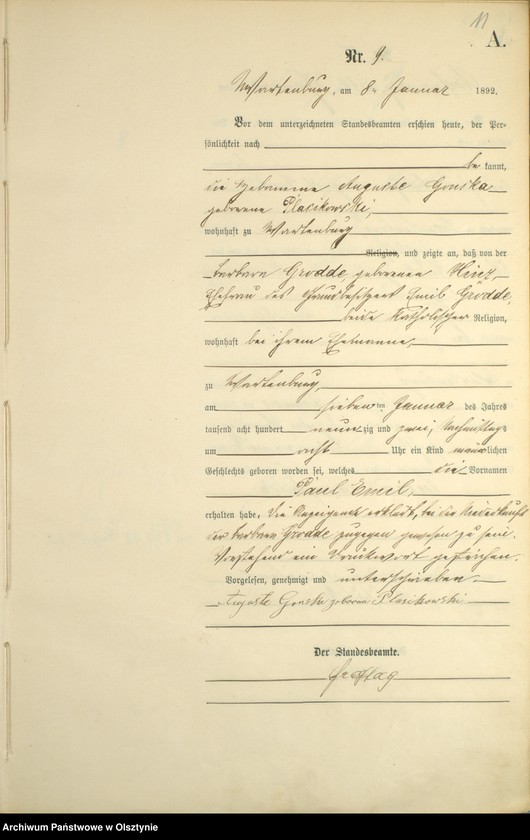 11
A.
Nr. 9.
Wartenburg, am 8ten Januar 1892.
Vor dem unterzeichneten Standesbeamten erschien heute, der Per-
sönlichkeit nach
be kannt,
die Hebamme Auguste Gonska
geborene Plasikowski,
wohnhaft zu Wartenburg
Religion, und zeigte an, daß von der
Barbara Grodde, geborenen Hinz,
Ehefrau des Grundbesitzers Emil Grodde,
beide katholischer Religion,
wohnhaft bei ihrem Ehemanne,
zu Wartenburg,
am siebenten Januar des Jahres
tausend acht hundert neunzig und zwei, Nachmittags
um acht Uhr ein Kind männlichen
Geschlechts geboren worden sei, welches die Vornamen
Paul Emil,
erhalten habe. Die Anzeigende erklärt, bei der Niederkunft
der Barbara Grodde zugegen gewesen zu sein.
Vorstehend ein Druckwort gestrichen.
Vorgelesen, genehmigt und unterschrieben
Auguste Gonska geborene Plasikowski
Der Standesbeamte.
Archiwum Państwowe w Olsztynie